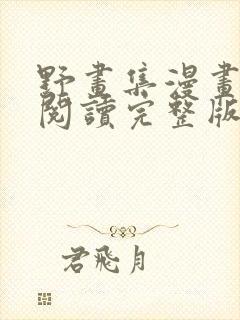 野畫集漫畫
閱讀完整版
君飛月